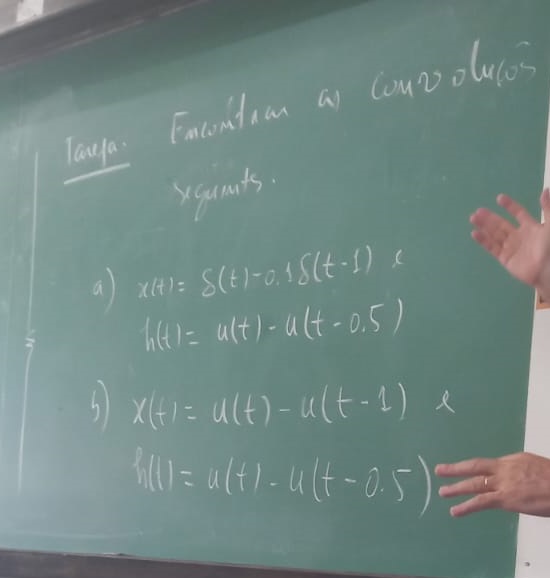 Tarefa. Encontrar as convoluções
seguintes.
a) x(t) = δ(t)-0.1δ(t-1) e
h(t) = u(t) - u(t - 0.5)
b) x(t) = u(t) - u(t - 1) e
h(t) = u(t) - u(t - 0.5)